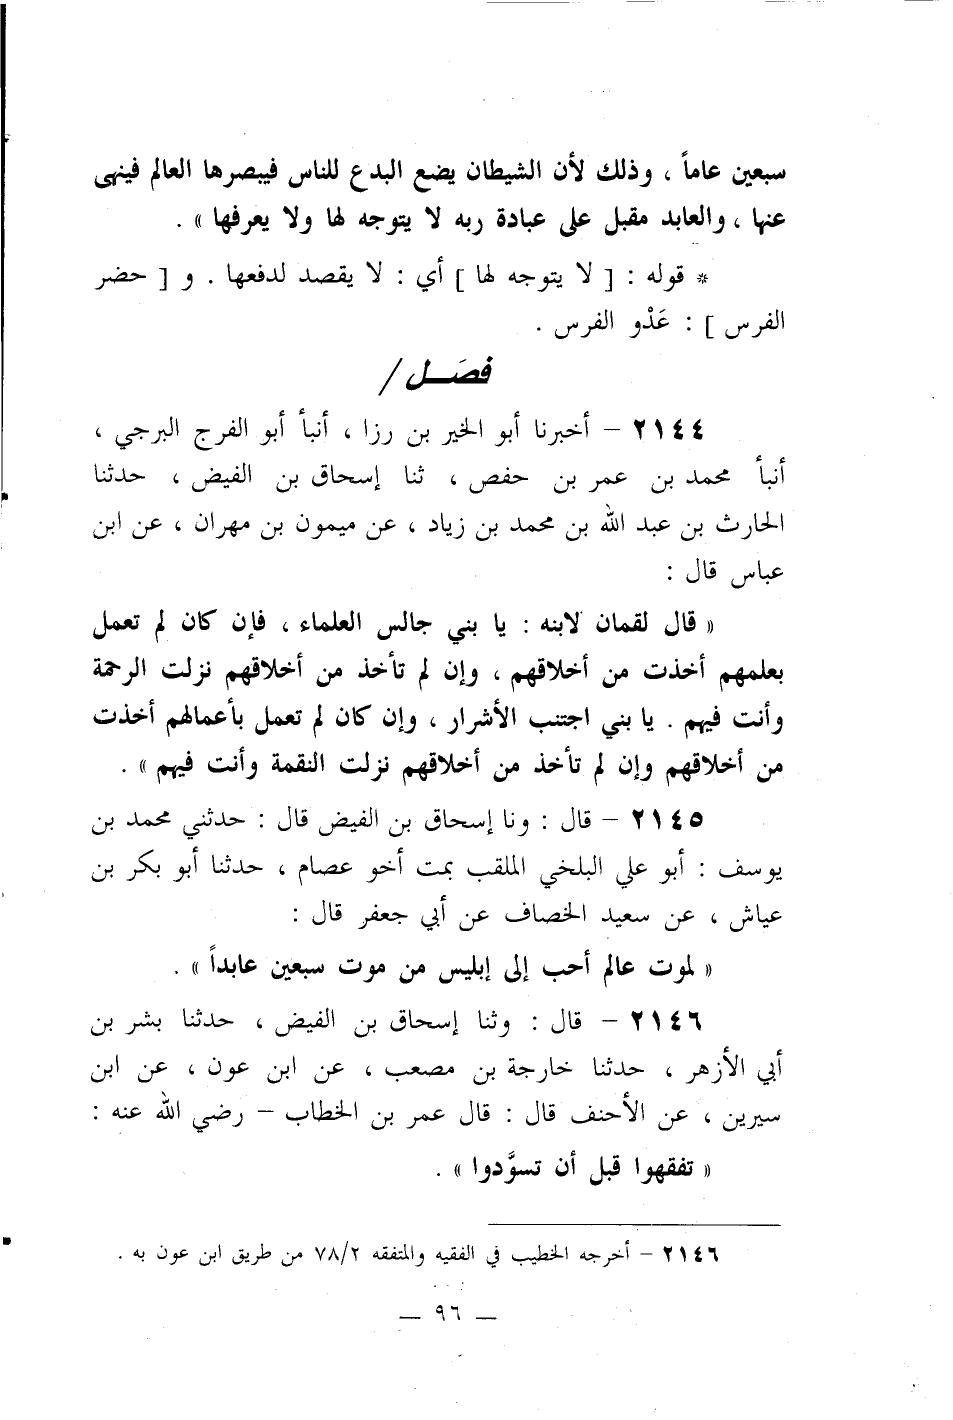 سبعين عاماً ، وذلك لأن الشيطان يضع البدع للناس فيبصرها العالم فينهى
عنها ، والعابد مقبل على عبادة ربه لا يتوجه لها ولا يعرفها » .
* قوله : [ لا يتوجه لها ] أي : لا يقصد لدفعها . و [ حضر
الفرس ] : عَدْو الفرس .
فصَــل /
٢١٤٤ – أخبرنا أبو الخير بن رزا ، أنبأ أبو الفرج البرجي ،
أنبأ محمد بن عمر بن حفص ، ثنا إسحاق بن الفيض ، حدثنا
الحارث بن عبد الله بن محمد بن زياد ، عن ميمون بن مهران ، عن ابن
عباس قال :
« قال لقمان لابنه : يا بني جالس العلماء ، فإن كان لم تعمل
بعلمهم أخذت من أخلاقهم ، وإن لم تأخذ من أخلاقهم نزلت الرحمة
وأنت فيهم . يا بني اجتنب الأشرار ، وإن كان لم تعمل بأعمالهم أخذت
من أخلاقهم وإن لم تأخذ من أخلاقهم نزلت النقمة وأنت فيهم » .
٢١٤٥ – قال : ونا إسحاق بن الفيض قال : حدثني محمد بن
يوسف : أبو علي البلخي الملقب بمت أخو عصام ، حدثنا أبو بكر بن
عياش ، عن سعيد الخصاف عن أبي جعفر قال :
« لموت عالم أحب إلى إبليس من موت سبعين عابداً » .
٢١٤٦ – قال : وثنا إسحاق بن الفيض ، حدثنا بشر بن
أبي الأزهر ، حدثنا خارجة بن مصعب ، عن ابن عون ، عن ابن
سيرين ، عن الأحنف قال : قال عمر بن الخطاب – رضي الله عنه :
« تفقهوا قبل أن تسوَّدوا » .
٢١٤٦ – أخرجه الخطيب في الفقيه والمتفقه ٧٨/٢ من طريق ابن عون به .
— ٩٦ —